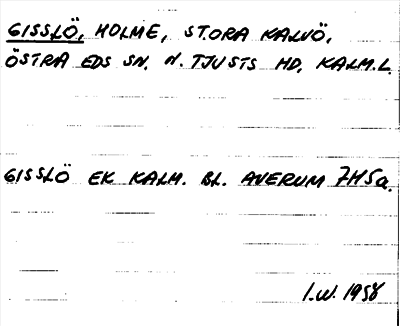 GISSLÖ, HOLME, STORA KALVÖ,
ÖSTRA EDS SN. N. TJUSTS HD. KALM.L.
GISSLÖ EK KALM. BL. AVERUM 7H5a.
I.W. 1958